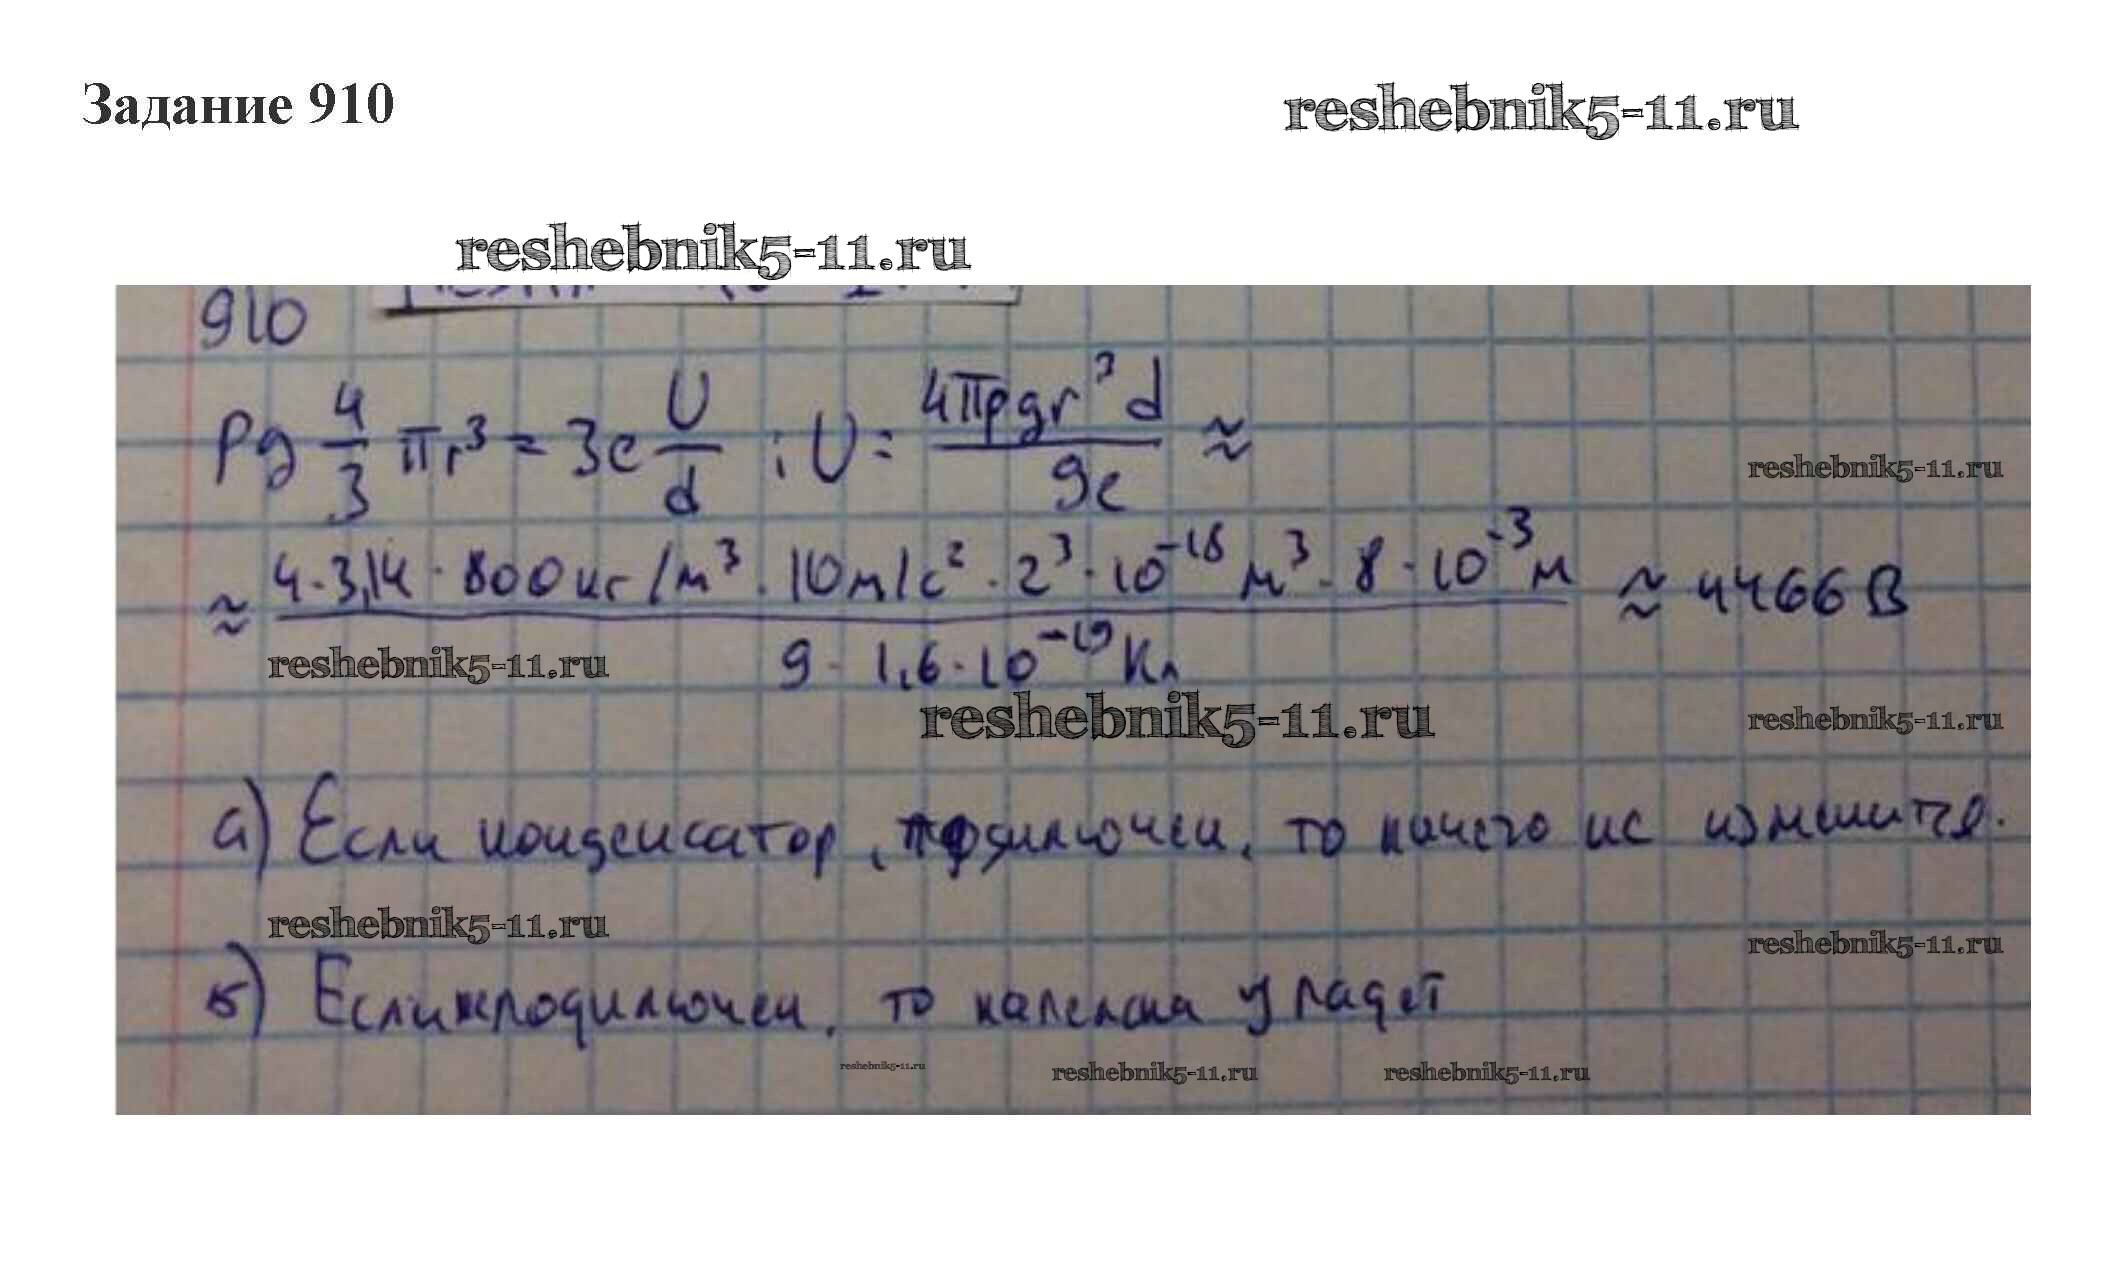 Задание 910
reshebnik5-11.ru
reshebnik5-11.ru
910
ρg 4/3 πr³ = 3e U/d ; U = 4πρgr³d / 9e ≈
reshebnik5-11.ru
≈ 4·3,14·800кг/м³·10м/с²·2³·10⁻¹⁸м³·8·10⁻³м / 9·1,6·10⁻¹⁹Кл ≈ 4466В
reshebnik5-11.ru
reshebnik5-11.ru
reshebnik5-11.ru
а) Если конденсатор, подключен, то ничего не изменится.
reshebnik5-11.ru
reshebnik5-11.ru
б) Если подключен, то капелька упадет
reshebnik5-11.ru
reshebnik5-11.ru
reshebnik5-11.ru